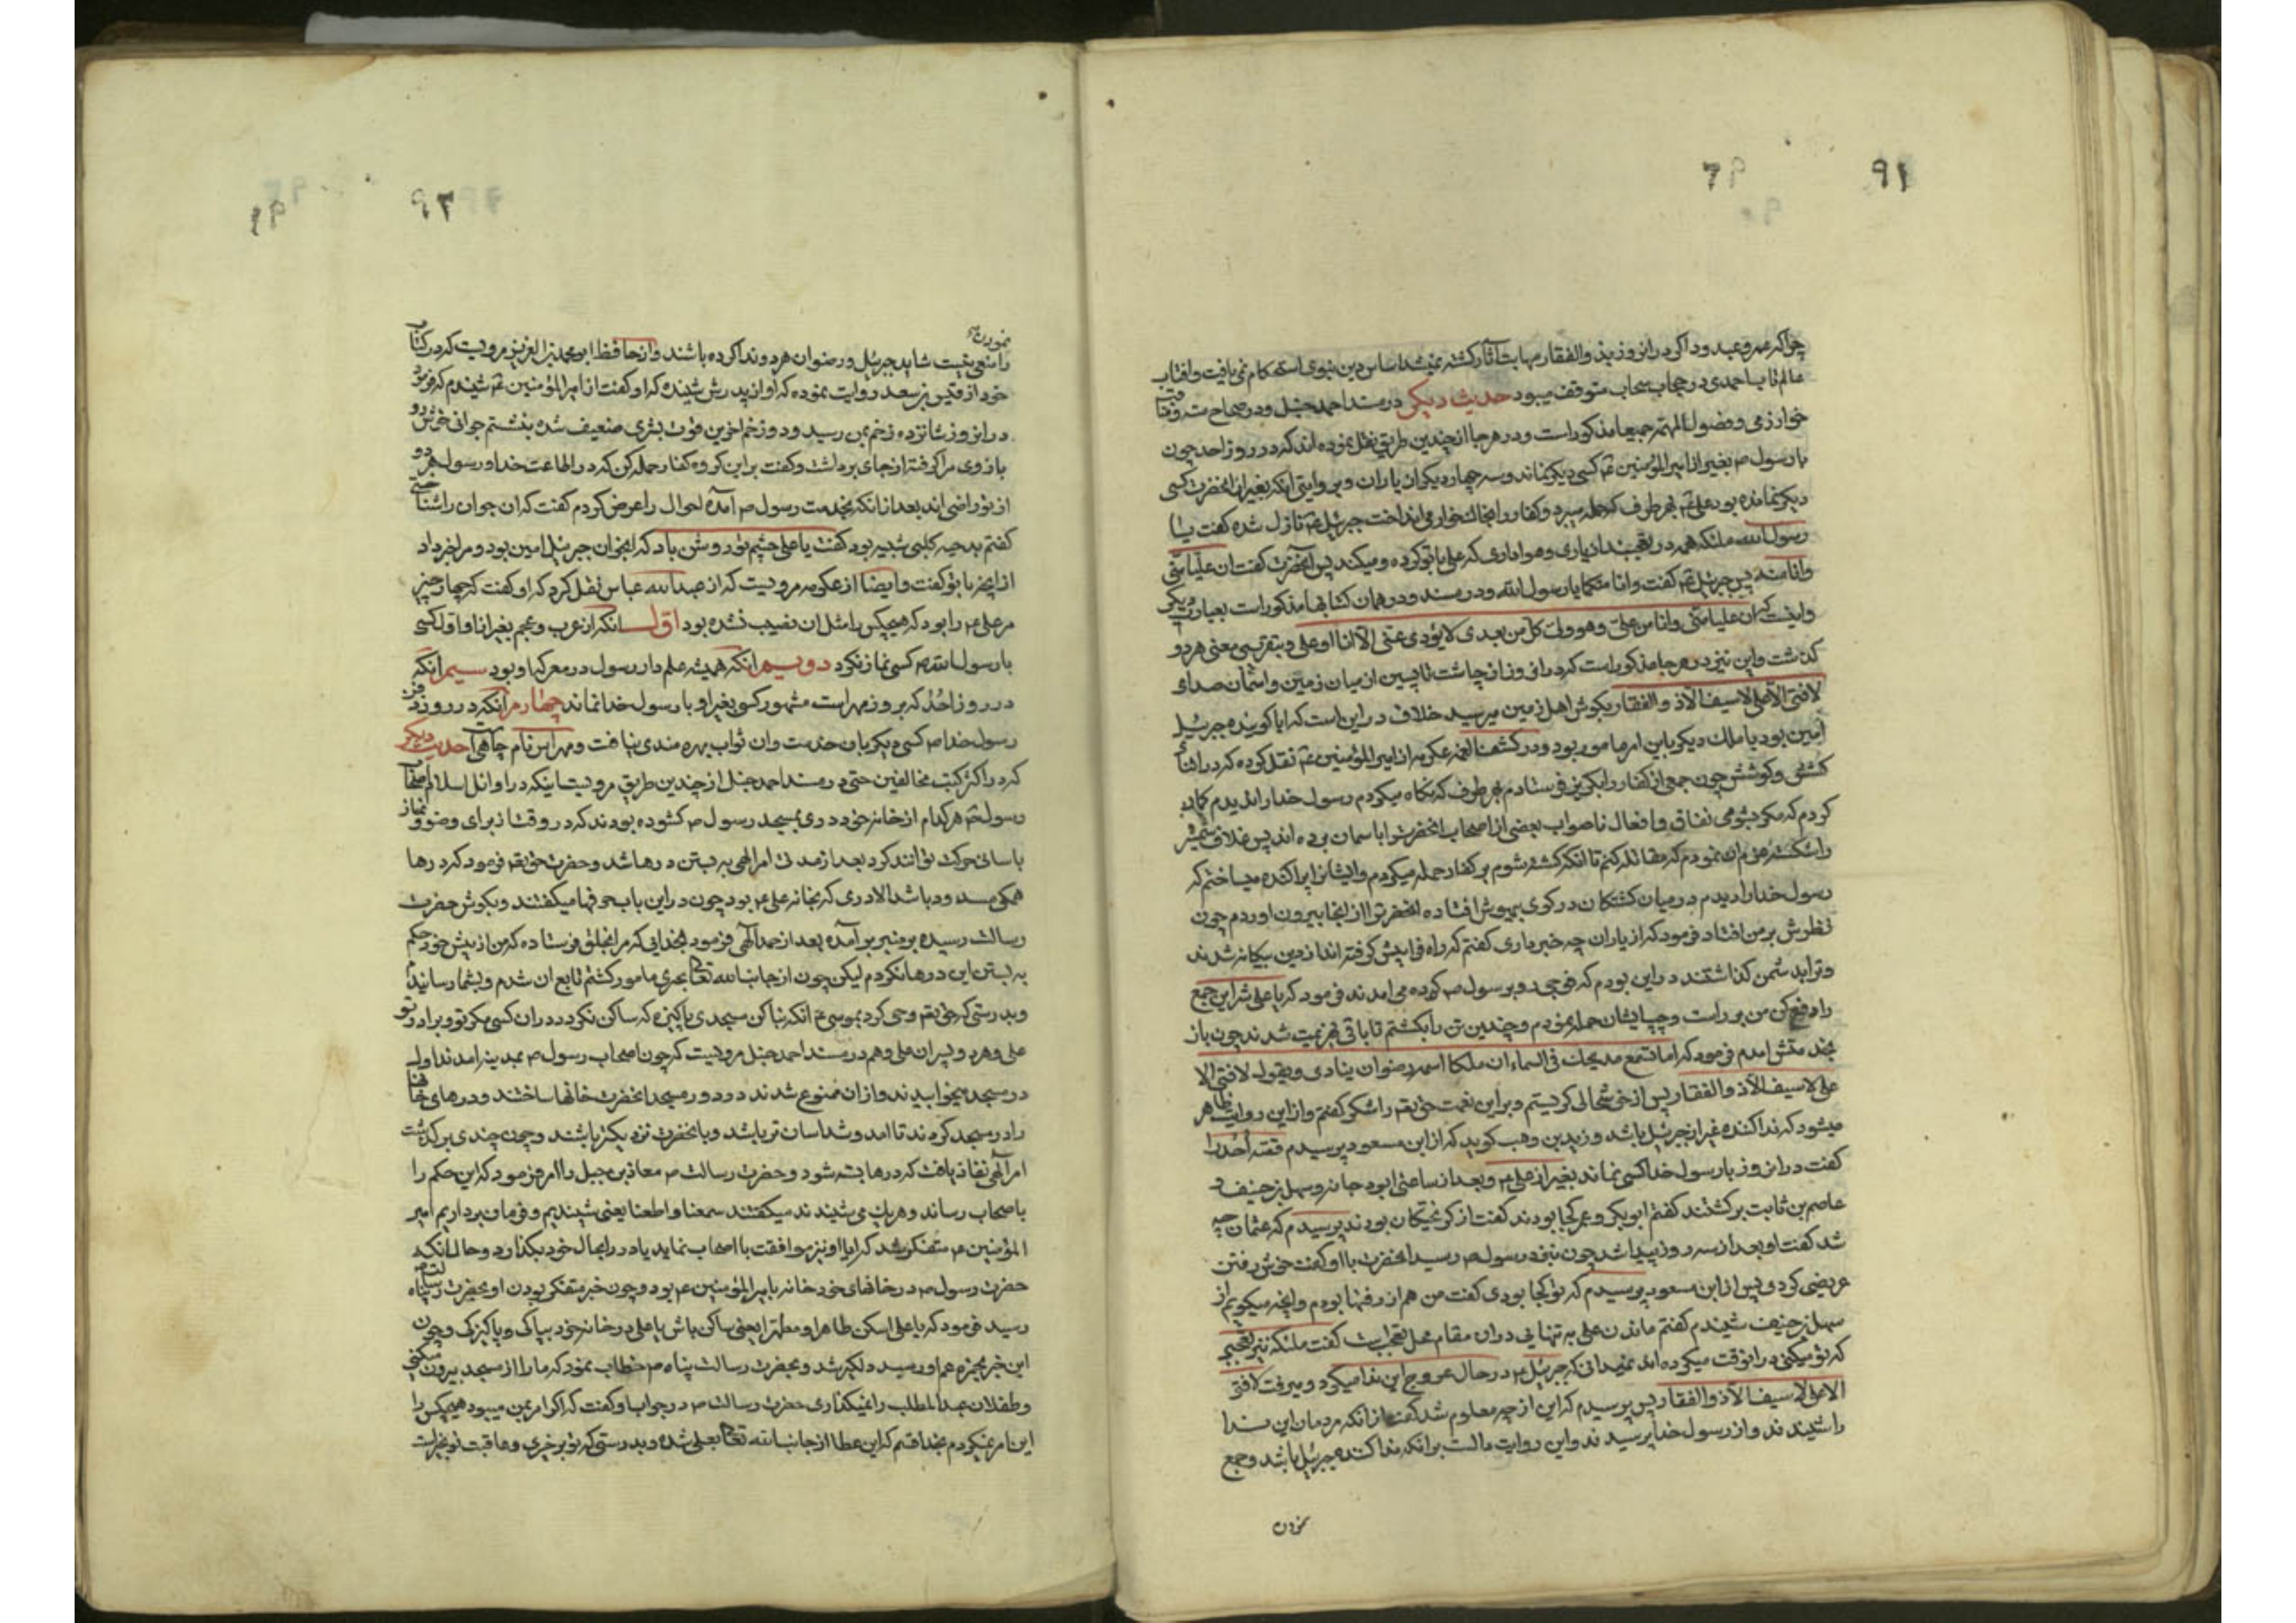 ۹۲
چراکه عمرو عبدود اگر در انروز بذوالفقار مهابت آثار کشته نمیشد اساس دین نبوی استحکام نمی یافت وافتاب
عالمتاب احمدی در حجاب سحاب متوقف میبود حدیث دیکر در مسند احمد حنبل ودر صحاح سته ومناقب
خوارزمی وفصول المهمه جمیعا مذکور است ودر هر جا از چندین طریق نقل نموده اند که در روز احد چون
با رسول ص بغیر از امیرالمؤمنین ع کسی دیکر نماند وسه چهار دیکر از یاران وبروایتی انکه بغیر از انحضرت کسی
دیکر نمانده بود علی ع بهر طرف که حمله میبرد وکفار را بخاک خواری می انداخت جبرئیل ع نازل شده کفت یا
رسول الله ملئکه همه در تعجبند از یاری وهواداری که علی با تو کرده ومیکند پس انحضرت کفت ان علیا منی
وانا منه پس جبرئیل ع کفت وانا منکما یا رسول الله ودر مسند ودر همان کتابها مذکور است بعبارت دیکر
واینست که ان علیا منی وانا من علی وهو ولی کل من بعدی لا یؤدی عنی الا انا او علی وبتقریبی معنی هر دو
کذشت واین نیز در هر جا مذکور است که در انروز از چاشت تا پسین از میان زمین واسمان صداء
لا فتی الا علی لا سیف الا ذوالفقار بکوش اهل زمین میرسید خلاف در این است که ایا کوینده جبرئیل
امین بود یا ملک دیکر باین امر مامور بود ودر کشف الغمه عکرمه از امیرالمؤمنین ع نقل کرده که در اثناء
کشش وکوشش چون جمعی از کفار را بکریز فرستادم بهر طرف که نکاه میکردم رسول خدا را ندیدم کمان
کردم که مکر بشومی نفاق وافعال ناصواب بعضی از اصحاب انحضرت را باسمان برده اند پس غلاف شمشیر
را شکسته عزم ان نمودم که مقاتله کنم تا انکه کشته شوم بر کفار حمله میکردم وایشانرا پراکنده میساختم که
رسول خدا را دیدم در میان کشتکان در کوی بیهوش افتاده انحضرت را از انجا بیرون اوردم چون
نظرش بر من افتاد فرمود که از یاران چه خبر داری کفتم که راه فرار پیش کرفته اند از دین بیکانه شدند
وترا بدشمن کذاشتند در این بودم که فوجی رو برسول ص کرده می امدند فرمود که یا علی شر این جمع
را دفع کن من بر راست وچپ ایشان حمله نمودم وچندین تن را بکشتم تا باقی بهزیمت شدند چون باز
بخدمتش امدم فرمود که اما تسمع مدیحک فی السماء ان ملکا اسمه رضوان ینادی ویقول لا فتی الا
علی لا سیف الا ذوالفقار پس از خوشحالی کریستم وبر این نعمت حق تع را شکر کفتم واز این روایت ظاهر
میشود که نداکننده غیر از جبرئیل باشد وزید بن وهب کوید که از ابن مسعود پرسیدم قصه احد را
کفت در انروز با رسول خدا کسی نماند بغیر از علی ع وبعد از ساعتی ابو دجانه وسهل بن حنیف و
عاصم بن ثابت برکشتند کفتم ابو بکر وعمر کجا بودند کفت از کریختکان بودند پرسیدم که عثمان چه
شد کفت او بعد از سه روز پیدا شد چون بنزد رسول ص رسید انحضرت باو کفت خوش رفتن
عریضی کردی پس از ابن مسعود پرسیدم که تو کجا بودی کفت من هم از رفتها بودم وانچه میکویم از
سهل بن حنیف شنیدم کفتم ماندن علی به تنهایی در ان مقام محل تعجبست کفت ملئکه نیز تعجبی
که تو میکنی در انوقت میکرده اند نمیدانی که جبرئیل ع در حال عروج این ندا میکرد ومیرفت لا فتی
الا علی لا سیف الا ذوالفقار پس پرسیدم که این از چه معلوم شد کفت از انکه مردمان این ندا
را شنیدند واز رسول خدا پرسیدند واین روایت دالست بر انکه نداکننده جبرئیل باشد وجمع
نمودن
۹۳
نمودن
را منعی نیست شاید جبرئیل ورضوان هر دو ندا کرده باشند واز حافظ ابو محمد عبدالعزیز مرویست که در کتاب
خود از قیس بن سعد روایت نموده که او از پدرش شنیده که او کفت از امیرالمؤمنین ع شنیدم که فرمود
در انروز شانزده زخم بمن رسید ودو زخم اخرین قوت بشری ضعیف شده بنشستم جوانی خوش رو
بازوی مرا کرفته از جای برداشت وکفت بر این کروه کفار حمله کن که در اطاعت خدا ورسول هر دو
از تو راضی اند بعد از انکه بخدمت رسول ص آمده احوال را عرض کردم کفت که ان جوان را شناختی
کفتم بدحیه کلبی شبیه بود کفت یا علی چشم تو روشن باد که انجوان جبرئیل امین بود ومرا خبر داد
از انچه با تو کفت وایضا از عکرمه مرویست که از عبدالله عباس نقل کرد که او کفت که چهار چیز
مر علی ع را بود که هیچکس را مثل ان نصیب نشده بود اول انکه از عرب وعجم بغیر از او اول کسی
با رسول الله ص کسی نماز نکرد دویم انکه همیشه علمدار رسول در معرکها او بود سیم انکه
در روز احد که بروز مهراست مشهور کسی بغیر او با رسول خدا نماند چهارم انکه در روز دفن
رسول خدا ص کسی دیکر بان خدمت وان ثواب بهره مندی نیافت ومهراس نام چاهی است حدیث دیکر
که در اکثر کتب مخالفین حتی در مسند احمد حنبل از چندین طریق مرویست اینکه در اوائل اسلام اصحاب
رسول ص هر کدام از خانه خود دری بمسجد رسول ص کشوده بودند که در وقت نماز برای وضو ونماز
باسانی حرکت توانند کرد بعد از مدتی امر الهی به بستن درها شد وحضرت حق تع فرمود که درها
همکی مسدود باشد الا دری که بخانه علی ع بود چون در این باب حرفها میکفتند وبکوش حضرت
رسالت رسیده بر منبر برآمده بعد از حمد الهی فرمود بخدایی که مرا بخلق فرستاده که من از پیش خود حکم
به بستن این درها نکردم لیکن چون از جانب الله تعالی بچیزی مامور کشتم تابع ان شدم وبشما رسانیدم
وبدرستی که حق تع وحی کرد بموسی ع انکه بنا کن مسجدی پاکیزه که ساکن نکردد در ان کسی مکر تو وبرادر تو
علی وهر دو پسران علی وهم در مسند احمد حنبل مرویست که چون اصحاب رسول ص بمدینه امدند اول
در مسجد میخوابیدند واز ان ممنوع شدند ودر دور مسجد انحضرت خانها ساختند ودرهای خانها
را در مسجد کردند تا امد وشد اسان تر باشد وبانحضرت نزدیکتر باشند وچون چندی بر کذشت
امر الهی نفاذ یافت که درها بسته شود وحضرت رسالت ص معاذ بن جبل را امر فرمود که این حکم را
باصحاب رساند وهریک می شنیدند میکفتند سمعنا واطعنا یعنی شنیدیم وفرمان برداریم امیر
المؤمنین ع متفکر شد که ایا او نیز موافقت با اصحاب نماید یا در را بحال خود بکذارد وحال انکه
حضرت رسول ص در خانهای خود خانه بامیرالمؤمنین ع بود وچون خبر متفکر بودن او بحضرت رسالت پناه
رسید فرمود که یا علی اسکن طاهرا ومطهرا یعنی ساکن باش یا علی در خانه خود بپاکی وپاکیزکی وچون
این خبر بحمزه عم او رسید دلکیر شد وبحضرت رسالت پناه ص خطاب نمود که ما را از مسجد بیرون میکنی
وطفلان عبدالمطلب را نمیکذاری حضرت رسالت ص در جواب او کفت که اکر امر بمن میبود هیچکس را
این امر نمیکردم بخدا قسم که این عطا از جانب الله تعالی بعلی شده وبدرستی که تو بر خیری وعاقبت تو بخیر است